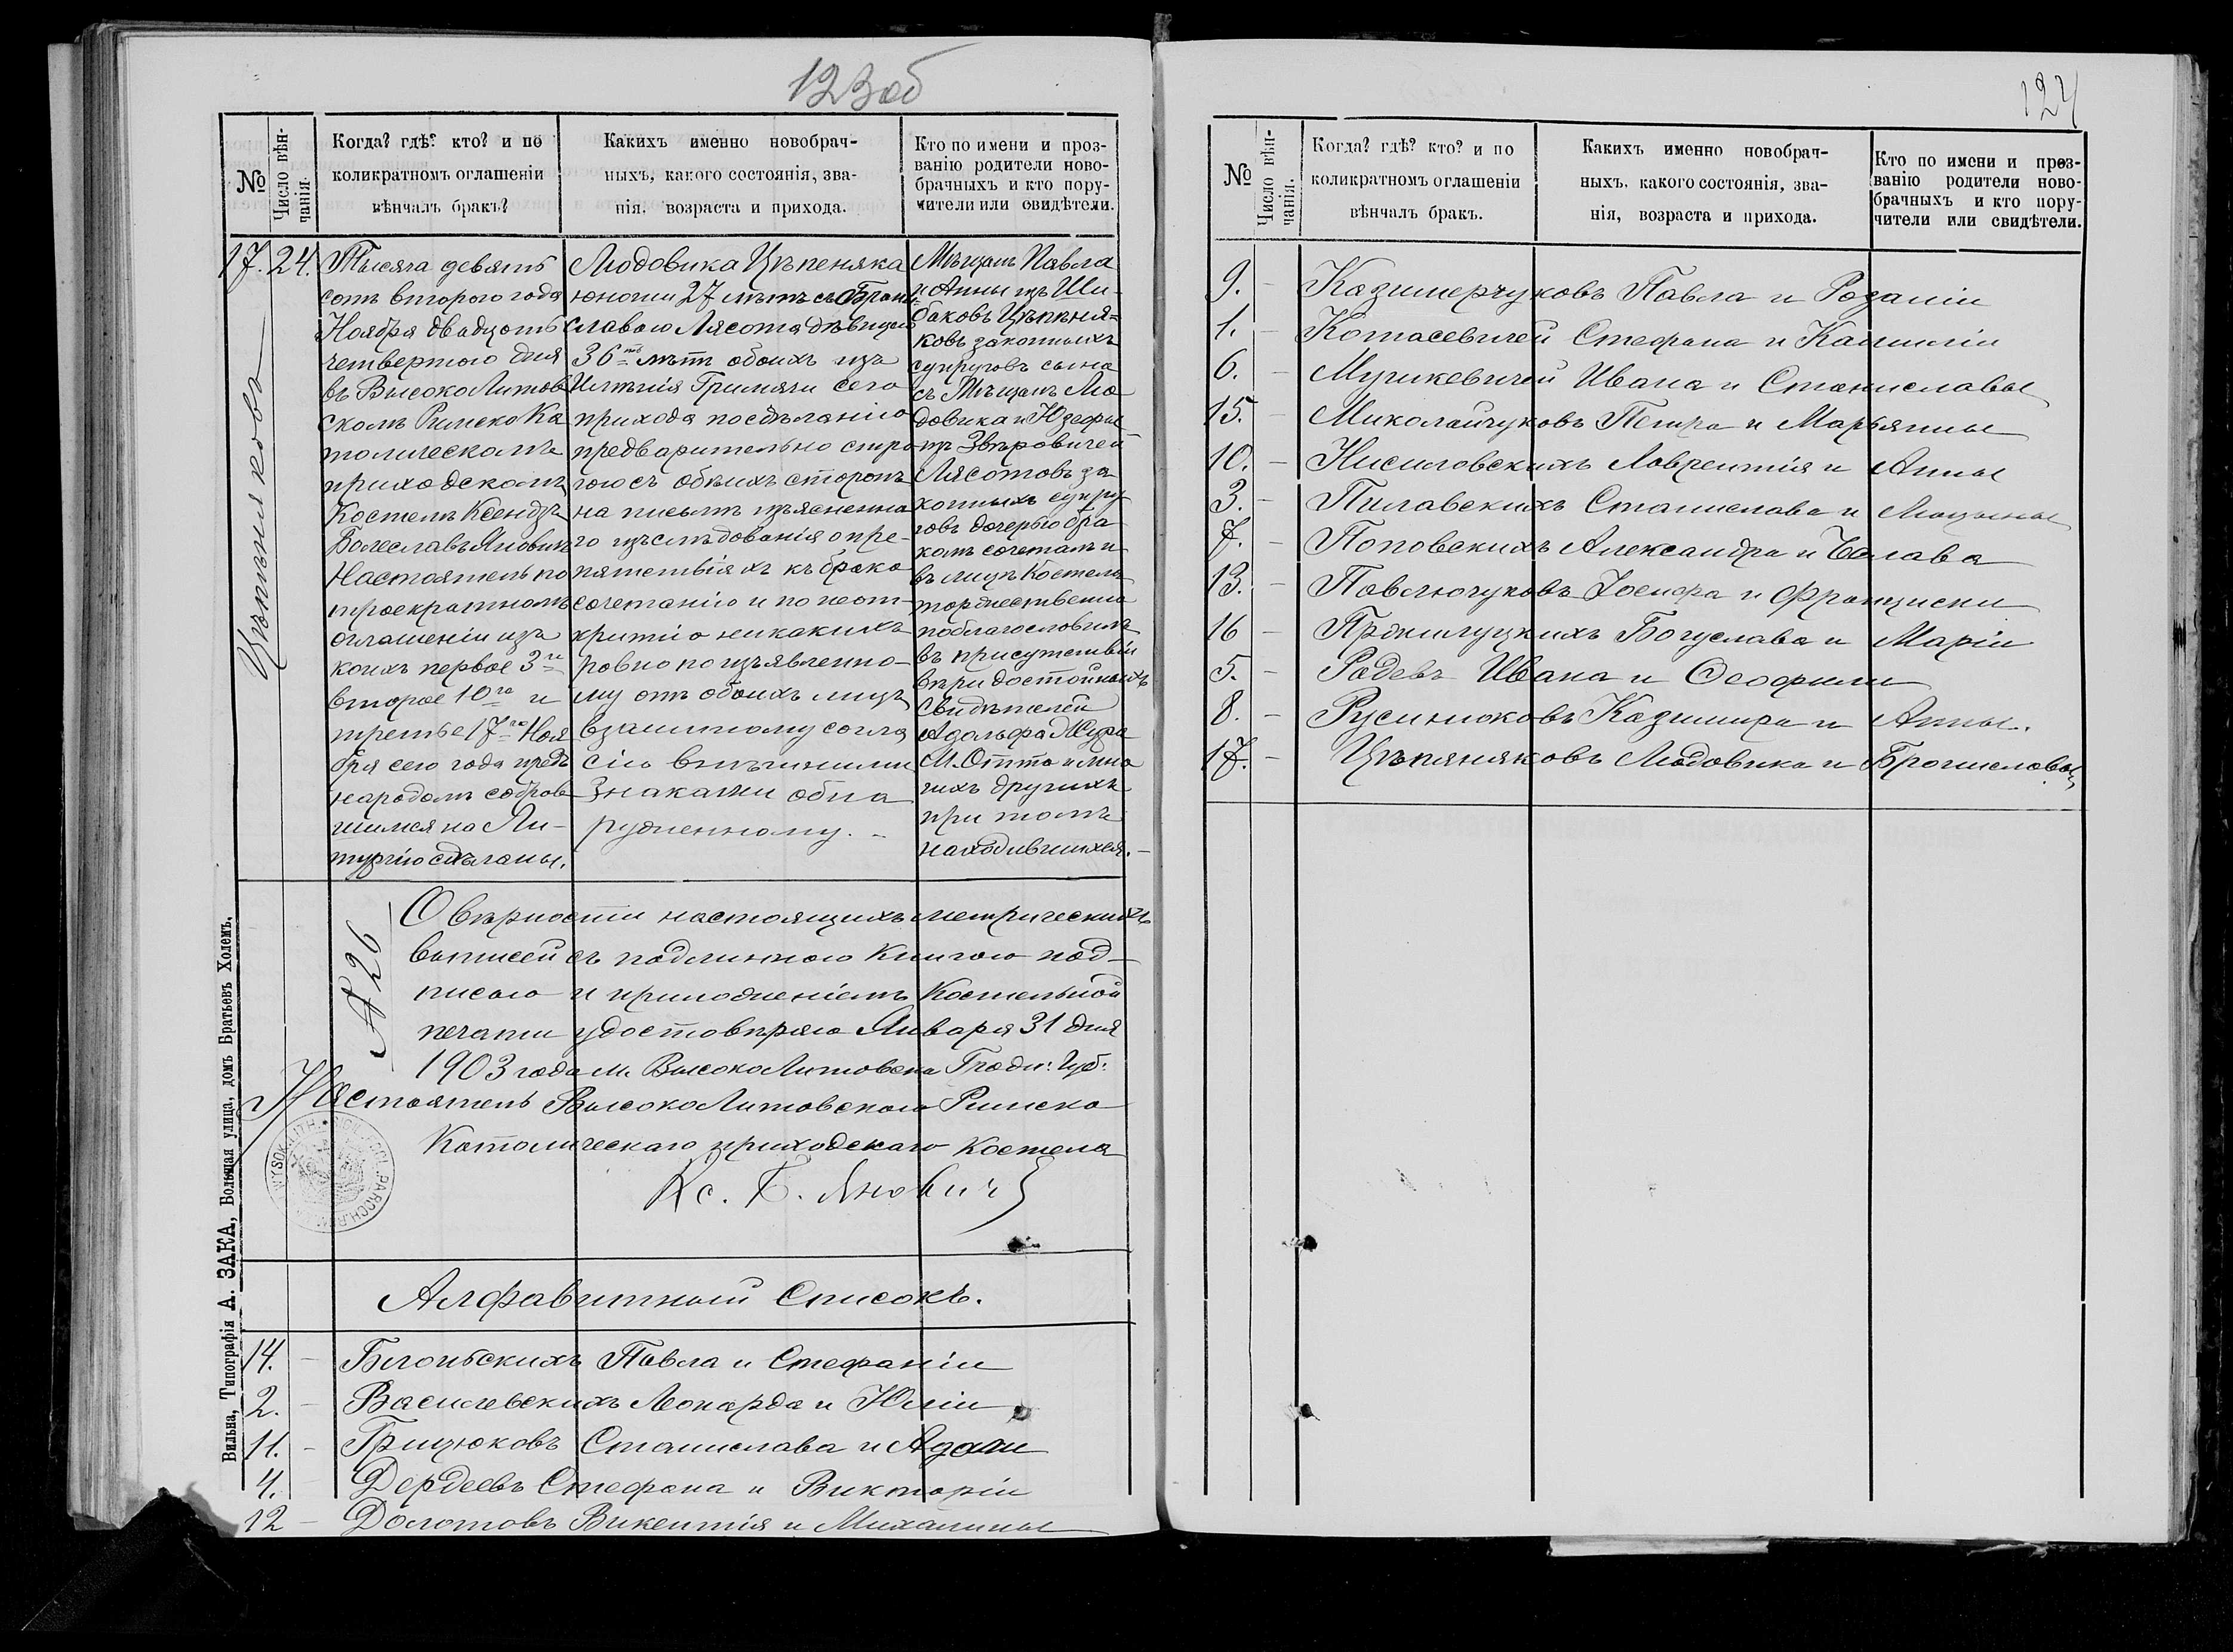 123об
№
Число вѣн-
чанія.
Когда? гдѣ? кто? и по
коликратномъ оглашеніи
вѣнчалъ бракъ?
Какихъ именно новобрач-
ныхъ, какого состоянія, зва-
нія, возраста и прихода.
Кто по имени и проз-
ванію родители ново-
брачныхъ и кто пору-
чители или свидѣтели.
17.
24.
Цѣпеняковъ
Тысяча девять
сотъ второго года
Ноября двадцать
четвертого дня
въ ВысокоЛитов
скомъ Римско Ка
толическомъ
приходскомъ
Костелѣ Ксендзъ
Болеславъ Яновичъ
Настоятель по
троекратномъ
оглашеніи изъ
коихъ первое 3го
второе 10го и
третье 17го Ноя
бря сего года предъ
народомъ собрав
шимся на Ли-
тургію сдѣланы.
Людовика Цѣпеняка
юношу 27 лѣтъ съ Брони-
славою Лясота дѣвицею
36ть лѣтъ обоихъ изъ
Имѣнія Гримячи сего
прихода по сдѣланію
предварительно стро
гою съ обѣихъ сторонъ
на письмѣ изъясненна
го изъслѣдованія о пре-
пятствіяхъ къ брако
сочетанію и по неот-
крытію никакихъ
ровно по изъявленно-
му отъ обоихъ лицъ
взаимному согла
сію внѣшними
знаками обна
руженному. -
Мѣщанъ Павла
и Анны изъ Ши-
баковъ Цѣпеня-
ковъ законныхъ
супруговъ сына
съ Мѣщанъ Лю
довика и Юзефы
изъ Звѣровичей
Лясотовъ за
конныхъ супру
говъ дочерью бра
комъ сочеталъ и
въ лицѣ Костела
торжественно
поблагословилъ
въ присутствіи
вѣри достойныхъ
Свидѣтелей
Адольфа Жука
М. Отто и мно
гихъ другихъ
при томъ
находившихся. -
№ 26
О вѣрности настоящихъ метрическихъ
выписей съ подлинною книгою под-
писью и приложеніемъ Костельной
печати удостовѣряю Января 31 дня
1903 года м. ВысокоЛитовскъ Гродн: Губ:
Настоятель ВысокоЛитовскаго Римско
Католическаго приходскаго костела
Кс. Б. Яновичъ
Алфавитный Списокъ.
14. - Бялоньскихъ Павла и Стефаніи
2. - Василевскихъ Леонарда и Юліи
11. - Грицюковъ Станислава и Адели
4. - Дердеевъ Стефана и Викторіи
12 - Долотовъ Викентія и Михалины
Вильна, Типографія А. ЗАКА, Большая улица, домъ Братьевъ Холемъ.
124
№
Число вѣн-
чанія.
Когда? гдѣ? кто? и по
коликратномъ оглашеніи
вѣнчалъ бракъ.
Какихъ именно новобрач-
ныхъ, какого состоянія, зва-
нія, возраста и прихода.
Кто по имени и проз-
ванію родители ново-
брачныхъ и кто пору-
чители или свидѣтели.
9. - Казимерчуковъ Павла и Розаліи
1. - Котасевичей Стефана и Камиліи
6. - Мушкевичей Ивана и Станиславы
15. - Миколайчуковъ Петра и Марьянны
10. - Нисиловскихъ Лаврентія и Анны
3. - Пилавскихъ Станислава и
7. - Поповскихъ Александра и
13. - Павлючуковъ Іосифа и Франциски
16 - Богуслава и Маріи
5. - Радевъ Ивана и Ѳеофили
8. - Русинюковъ Казимира и Анны.
17. - Цѣпяняковъ Людовика и Брониславы